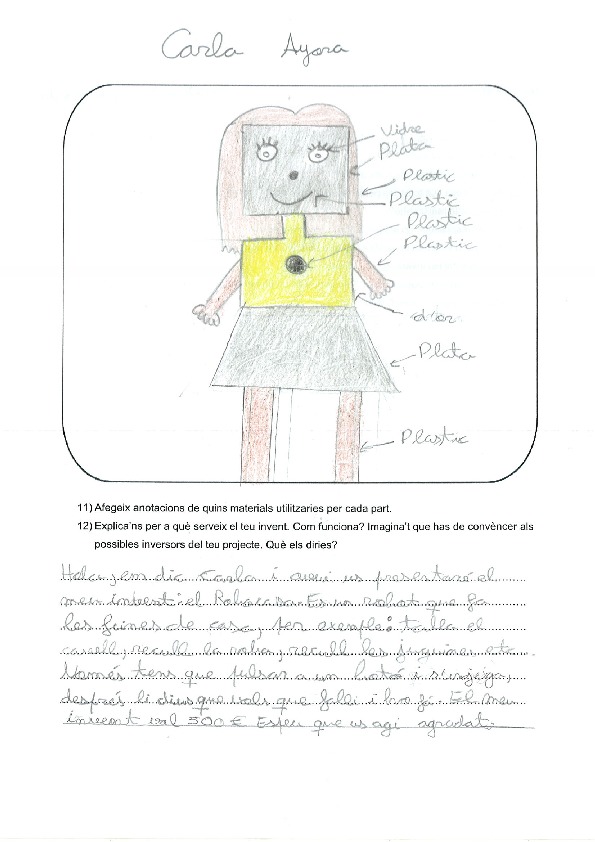 Carla Ayora
Vidre
Plata
Plastic
Plastic
Plastic
Plastic
d'or
Plata
Plastic
11) Afegeix anotacions de quins materials utilitzaries per cada part.
12) Explica'ns per a què serveix el teu invent. Com funciona? Imagina't que has de convèncer als
possibles inversors del teu projecte. Què els diries?
Hola, em dic Carla i avui us presentaré el
meu invent: el Robocasa. Es un robot que fa
les feines de casa, per exemple: talla el
cesell, recull la roba, recull les juguines, etc.
Només tens que pulsar a un botó i s'engega,
després li dius que vols que falli i ho fa. El meu
invent val 500 € Espeu que us agi agradat.